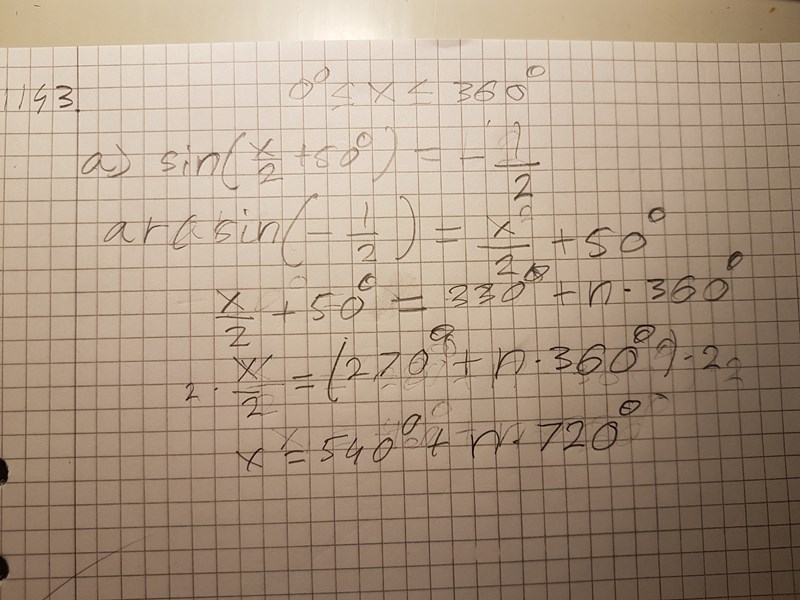 1143.
0° ≤ x ≤ 360°
a) sin(x/2 + 50°) = -1/2
arcsin(-1/2) = x/2 + 50°
x/2 + 50° = 330° + n · 360°
2 · x/2 = (270° + n · 360°) · 2
x = 540° + n · 720°